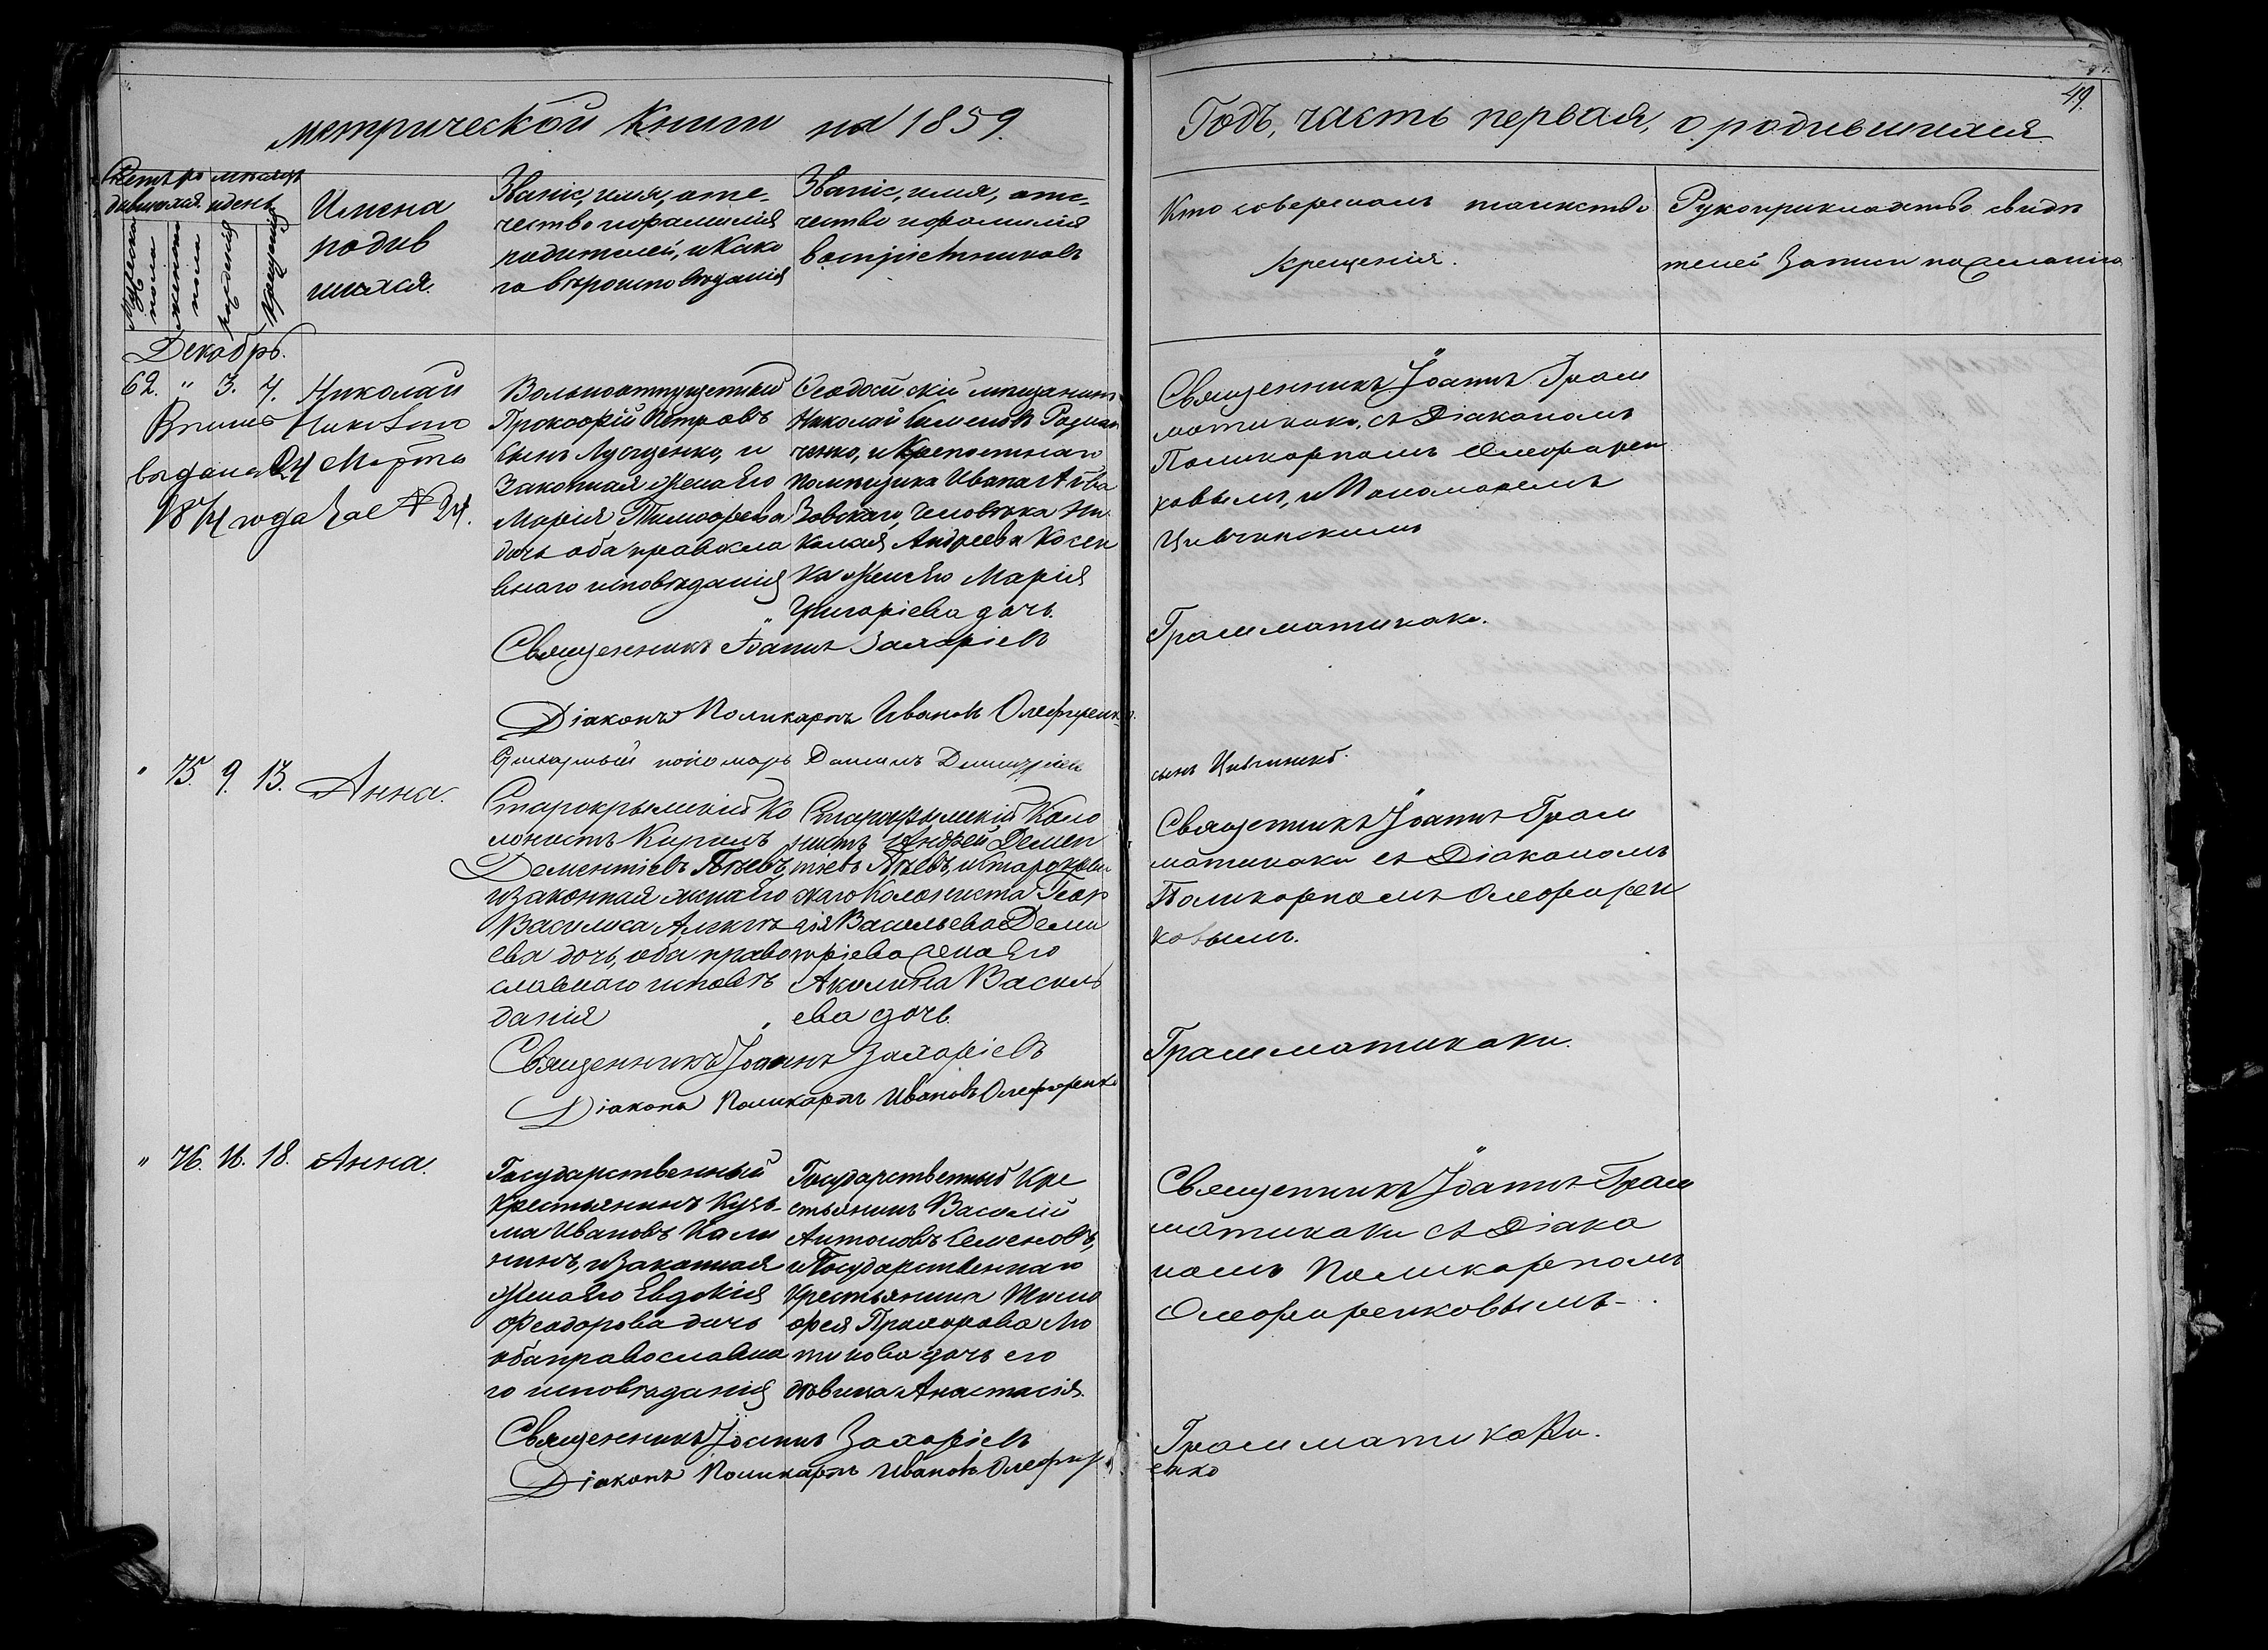 49.
метрической Книги на 1859.
Годъ, часть первая, о родившихся.
Счетъ ро
дившихся.
мѣсяцъ
и день
Мужеска
пола
женска
пола
рожденія
крещенія
Имена
родив
шихся.
Званіе, имя, оте-
чество и фамилія
родителей, и Како
го вѣроисповѣданія
Званіе, имя, оте-
чество и фамилія
воспріемниковъ
Кто совершалъ таинство
крещенія.
Рукоприкладство свидѣ
телей Записи по желанію
Декабрь.
62. " 3. 7. Николай
выдана 24 Марта
1874 года за № 24.
Вольноотпущенный
Прокофій Петровъ
сынъ Лущенко, и
Законная жена Его
Марія Тимофеева
дочь оба правосла
внаго исповѣданія
Феодосійскій мещанинъ
Николай Семеновъ
ченко, и Крепостнаго
помещика Ивана
зовскаго, человека Ни
колая Андреева Косен
ка жена Его Марія
Григоріева дочь.
Священникъ Іоаннъ Грам
матикаки, съ Діакономъ
Поликарпомъ Олефирен
ковымъ, и Пономаремъ
Цивчинскимъ
Священникъ Іоаннъ Захаріевъ Грамматикаки.
Діаконъ Поликарпъ Ивановъ Олефиренко.
пономарь Даніилъ сынъ
" 75. 9. 13. Анна.
Старокрымскій Ко
лонистъ Кирилъ
Дементіевъ
и законная жена Его
Василиса
ева дочь, оба право
славнаго исповѣ
данія
Старокрымскій Коло
нистъ Андрей Демен
тіевъ и Старокрым
скаго Колониста Геор
гія Васильева Дими
тріева жена Его
Акилина Василь
ева дочь.
Священникъ Іоаннъ Грам
матикаки съ Діакономъ
Поликарпомъ Олефирен
ковымъ.
Священникъ Іоаннъ Захаріевъ Грамматикаки.
Діаконъ Поликарпъ Ивановъ Олефиренко
" 76. 16. 18. Анна.
Государственный
крестьянинъ Кузь-
ма Ивановъ Кали
нинъ, и Законная
жена Его Евдокія
Феодорова дочь
оба православна
го исповѣданія
Государственный Кре
стьянинъ Василій
Антоновъ Семеновъ,
и Государственнаго
крестьянина Тимо
фея Прохорова Лю
тикова дочь его
дѣвица Анастасія.
Священникъ Іоаннъ Грам
матикаки съ Діако
номъ Поликарпомъ
Олефиренковымъ.
Священникъ Іоаннъ Захаріевъ Грамматикаки.
Діаконъ Поликарпъ Ивановъ Олефир
енко